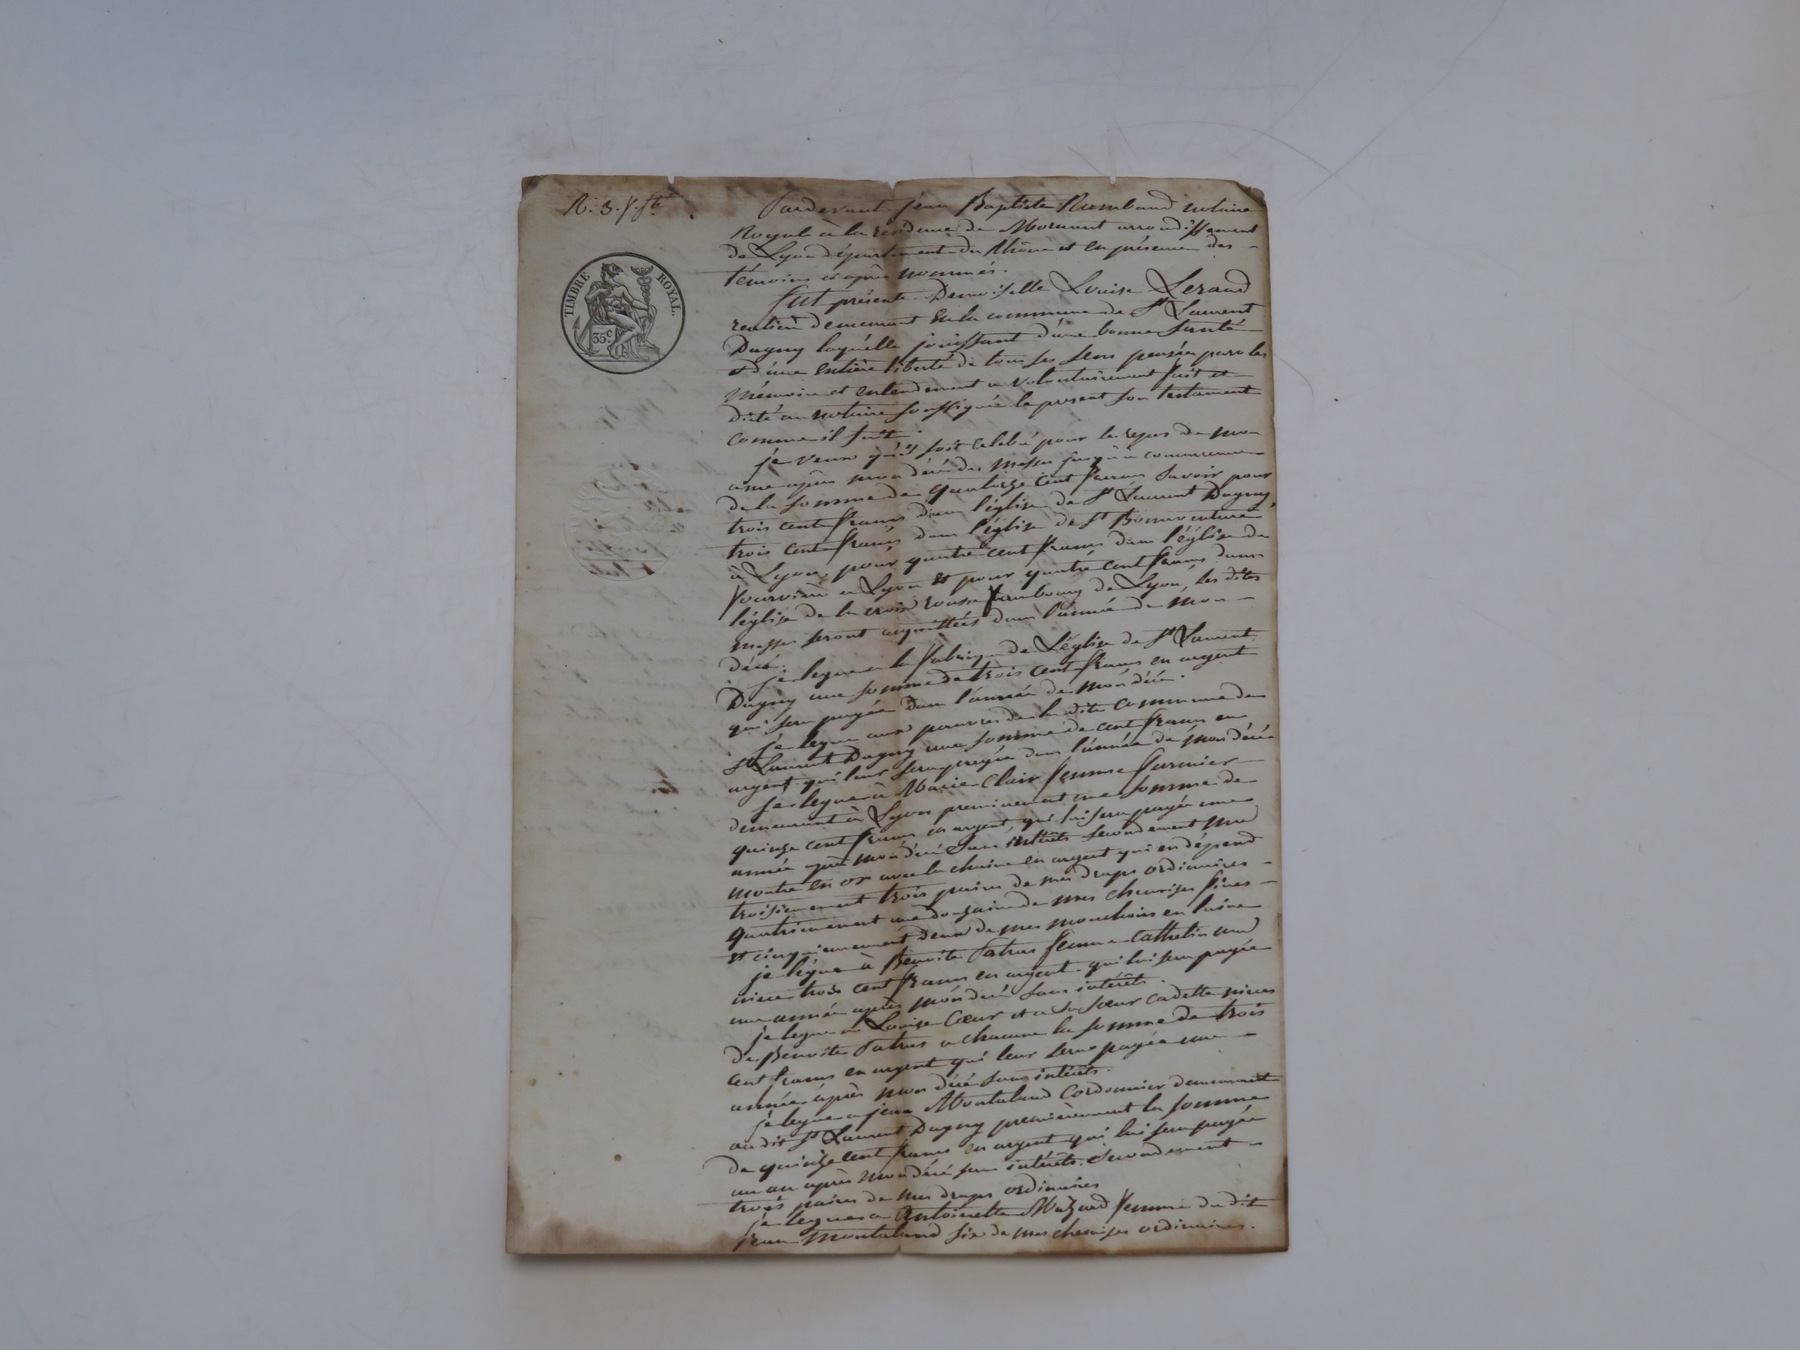 TIMBRE ROYAL.
35c
Pardevant jean Baptiste Rambaud notaire
Royal à la résidence de Mornant arrondissement
de Lyon département du Rhône et en présence des
témoins ci après nommés.
fut présente Demoiselle Louise
rentière demeurant en la commune de St Laurent
Dagny laquelle jouissant d'une bonne santé
et d'une entière liberté de tous ses sens pensée paroles
mémoire et entendement a volontairement fait et
dicté au notaire soussigné le present son testament
comme il suit.
je veux qu'il soit celebré pour le repos de mon
ame après mon décé des messes jusqu'à concurrence
de la somme de quatorze cent francs Savoir pour
trois cent francs dans l'église de St Laurent Dagny,
trois cent francs dans l'église de St Bonnaventure
à Lyon, pour quatre cent francs dans l'église de
fourvière a Lyon et pour quatre cent francs dans
l'église de la croix rousse faubourg de Lyon, les dites
messes seront acquittées dans l'année de mon
décé.
je legue a la fabrique de L'église de St Laurent
Dagny une somme de trois cent francs en argent
qui sera payée dans l'année de mon décé.
je legue aux pauvres de la dite commune de
St Laurent Dagny une somme de cent francs en
argent qui leur sera payée dans l'année de mon décé
je legue à Marie Clair femme
demeurant à Lyon premierement une somme de
quinze cent francs en argent, qui lui sera payée une
année après mon décé sans intérêts secondement ma
montre en or avec la chaine en argent qui en dépend
troisiemement trois paires de mes draps ordinaires
quatriemement une douzaine de mes chemises fines
et cinquiemement deux de mes mouchoirs en
je légue à Benoite Patras femme Cathelin ma
niece trois cent francs en argent qui lui sera payée
une année après mon décé sans intérêts.
je legue a Louise Cœur et a sa sœur cadette nieces
de Benoite Patras a chacune la somme de trois
cent francs en argent qui leur sera payée une
année après mon décé sans intérêts.
je legue a jean Montaland Cordonnier demeurant
au dit St Laurent Dagny premièrement la somme
de quinze cent francs en argent qui lui sera payée
un an après mon décé sans intérêts. Secondement
trois paires de mes draps ordinaires
je legue a Antoinette femme du dit
jean Montaland six de mes chemises ordinaires.